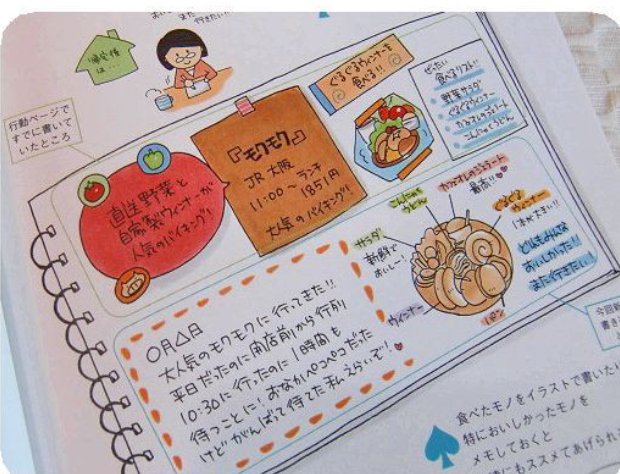 また
行きたい!!
帰宅後
は…
行動ページで
すでに書いて
いたところ
直送野菜と
自家製ウィンナーが
人気のバイキング!
『モクモク』
JR大阪
11:00〜ランチ
1851円
大気のバイキング!
ぐるぐるウィンナーを
食べる!!
ぜったい
食べるリスト!!
野菜サラダ
ぐるぐるウィンナー
カフェオレのジェラート
こんにゃくうどん
カフェオレのジェラート
最高!!
こんにゃく
うどん
ぐるぐる
ウィンナー
1本が大きい!!
サラダ
新鮮で
おいしー!
どれもみんな
おいしかった!!
また行きたい!
ウインナー
パン
〇月△日
大人気のモクモクに行ってきた!!
平日だったのに開店前から行列
10:30に行ったのに1時間も
待つことに!おなかペコペコだった
けどがんばって待てた私えらいぞ!
今回新
書き
食べたモノをイラストで書いたり
特においしかったモノを
メモしておくと
にもススメてあげられる